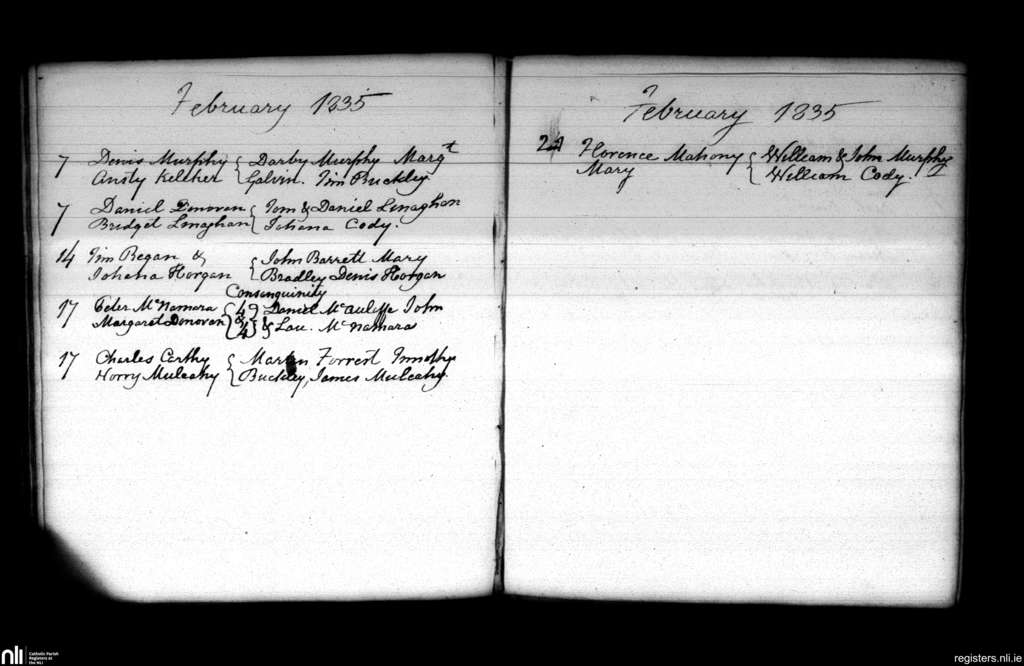 February 1835
7 Denis Murphy { Darby Murphy Margt
Ansty Keleher { Galvin. Tim Buckley
7 Daniel Donovan { Tom & Daniel Linaghan
Bridget Linaghan { Johana Cody.
14 Tim Regan & { John Barrett Mary
Johana Horgan { Bradley Denis Horgan
Consanguinity
17 Peter McNamara { 4 } Daniel McAuliffe John
Margaret Donovan { & 4 } & Lau. McNamara
17 Charles Carthy { Martin Forrest Timothy
Norry Mulcahy { Buckley, James Mulcahy
February 1835
Florence Mahony { William & John Murphy
Mary { William Cody.
nli Catholic Parish
Registers at
the NLI
registers.nli.ie